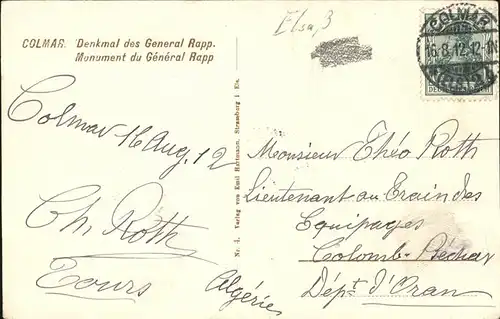 Elsa, 3
COLMAR. Denkmal des General Rapp.
Monument du Général Rapp
COLMAR
16.8.12.12-1
DEUTSCHES REICH
Colmar 16 Aug. 12
Ch. Roth
Tours
Nr. 4. Verlag von Emil Hartmann, Strassburg i. Els.
Monsieur Théo Roth
Lieutenant au Train des
Equipages
Colomb-Béchar
Dépt d'Oran
Algérie